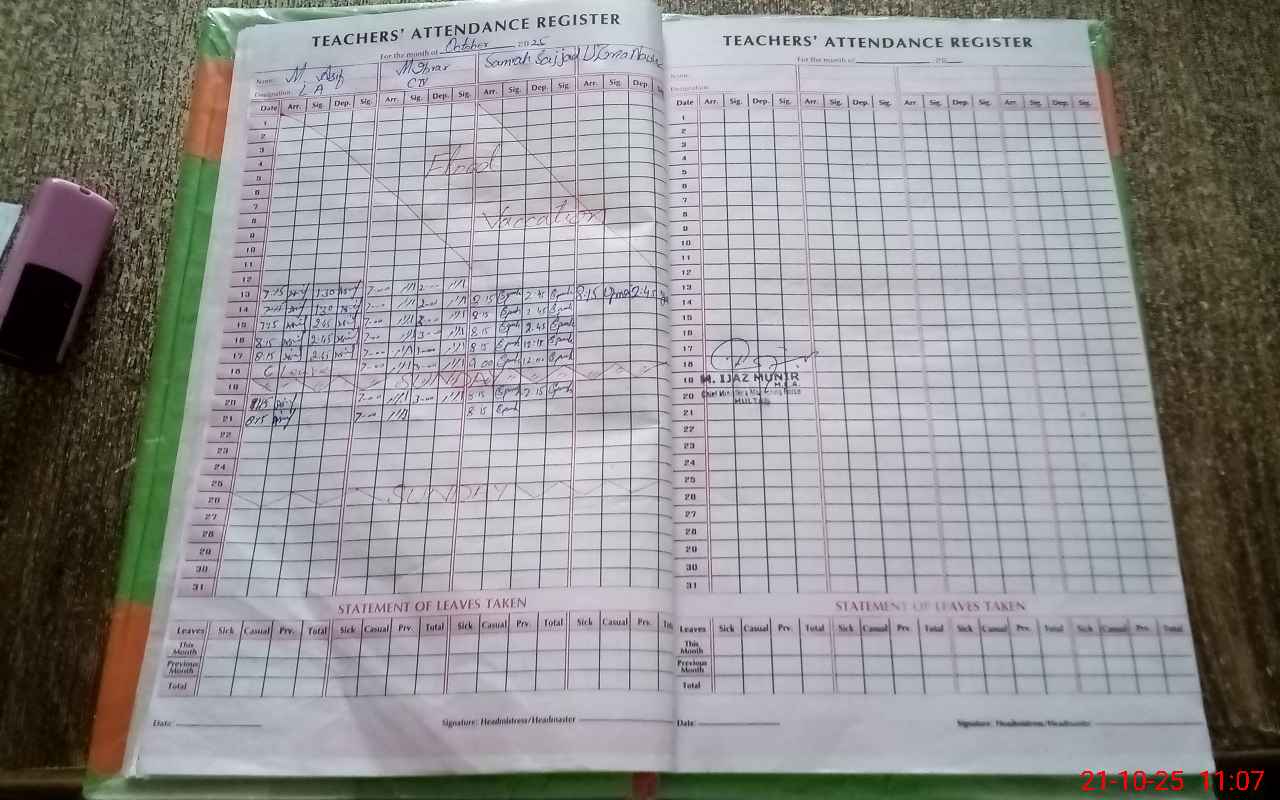 TEACHERS' ATTENDANCE REGISTER
For the month of October 2025
Name: M. Asif M. Israr Samiah Sajjad
Designation: LA
Date Arr. Sig. Dep. Sig. Arr. Sig. Dep. Sig. Arr. Sig. Dep. Sig. Arr. Sig. Dep.
1
2
3
4
Flood
5
6
7
Vaccation
8
9
10
11
12
13 7:15 1:30 7:00 2:00 8:15 2:45 8:15 2:45
14 7:15 1:30 7:00 2:00 8:15 2:45
15 7:45 2:45 7:00 8:15 2:45
16 8:15 2:45 7:00 3:00 8:15 12:15
17 8:15 2:45 7:00 3:00 9:00 12:00
18 C Leave
19 SUNDAY
20 8:15 7:00 3:00 8:15 2:15
21 8:15 7:00 8:15
22
23
24
25
26 SUNDAY
27
28
29
30
31
STATEMENT OF LEAVES TAKEN
Leaves Sick Casual Prv. Total Sick Casual Prv. Total Sick Casual Prv. Total Sick Casual Prv.
This Month
Previous Month
Total
Date: Signature: Headmistress/Headmaster
TEACHERS' ATTENDANCE REGISTER
For the month of 20
Name:
Designation:
Date Arr. Sig. Dep. Sig. Arr. Sig. Dep. Sig. Arr. Sig. Dep. Sig. Arr. Sig. Dep. Sig.
1
2
3
4
5
6
7
8
9
10
11
12
13
14
15
16
17
18
19
M. IJAZ MUNIR
M.E.A.
20
Chief Minister's Monitoring Force
MULTAN
21
22
23
24
25
26
27
28
29
30
31
STATEMENT OF LEAVES TAKEN
Leaves Sick Casual Prv. Total Sick Casual Prv. Total Sick Casual Prv. Total Sick Casual Prv. Total
This Month
Previous Month
Total
Date: Signature: Headmistress/Headmaster
21-10-25 11:07